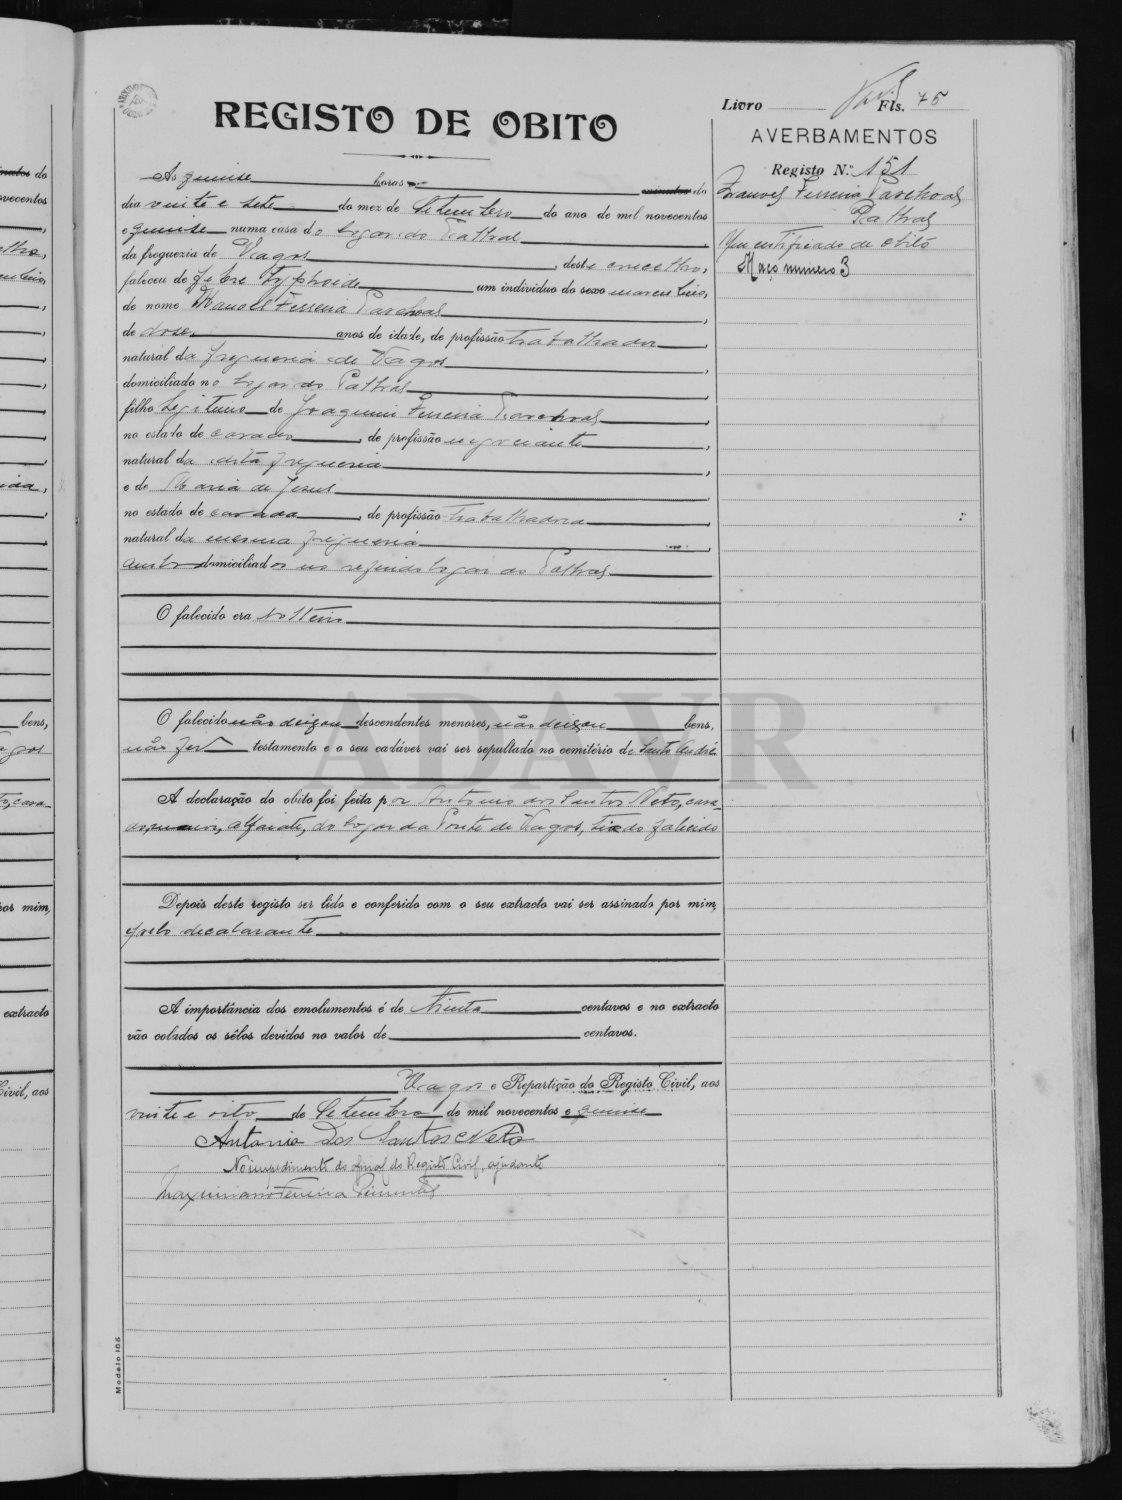 Livro Fls. 75
REGISTO DE OBITO
AVERBAMENTOS
Registo N.º 151
Manoel Ferreira Paschoal
Cathral
Um certificado de obito
Maço numero 3
As quinse horas minutos do
dia vinte e sete do mez de Setembro do ano de mil novecentos
e quinse numa casa do logar do Cathral
da freguezia de Vagos, deste concelho,
faleceu de febre typhoide um individuo do sexo masculino,
de nome Manoel Ferreira Paschoal,
de dose anos de idade, de profissão trabalhador,
natural da freguesia de Vagos,
domiciliado no logar do Cathral,
filho legitimo de Joaquim Ferreira Paschoal,
no estado de casado, de profissão negociante,
natural da dita freguesia,
e de Maria de Jesus,
no estado de casada, de profissão trabalhadora,
natural da mesma freguesia,
ambos domiciliados no referido logar do Cathral
O falecido era solteiro
O falecido não deixou descendentes menores, não deixou bens,
não fez testamento e o seu cadáver vai ser sepultado no cemitério de Santo André.
A declaração do obito foi feita por Antonio dos Santos Neto, casa-
do, alfaiate, do logar da Ponte de Vagos, tio do falecido
Depois deste registo ser lido e conferido com o seu extracto vai ser assinado por mim,
e pelo decalarante
A importância dos emolumentos é de trinta centavos e no extracto
vão colados os sêlos devidos no valor de centavos.
Vagos e Repartição do Registo Civil, aos
vinte e oito de Setembro de mil novecentos e quinse
Antonio Dos Santos Neto
No impedimento do oficial do Registo Civil, ajudante
Maximiano Ferreira Pimentel
Modelo 105
ADAVR
do
novecentos
bens,
Vagos
casa-
por mim,
extracto
Civil, aos